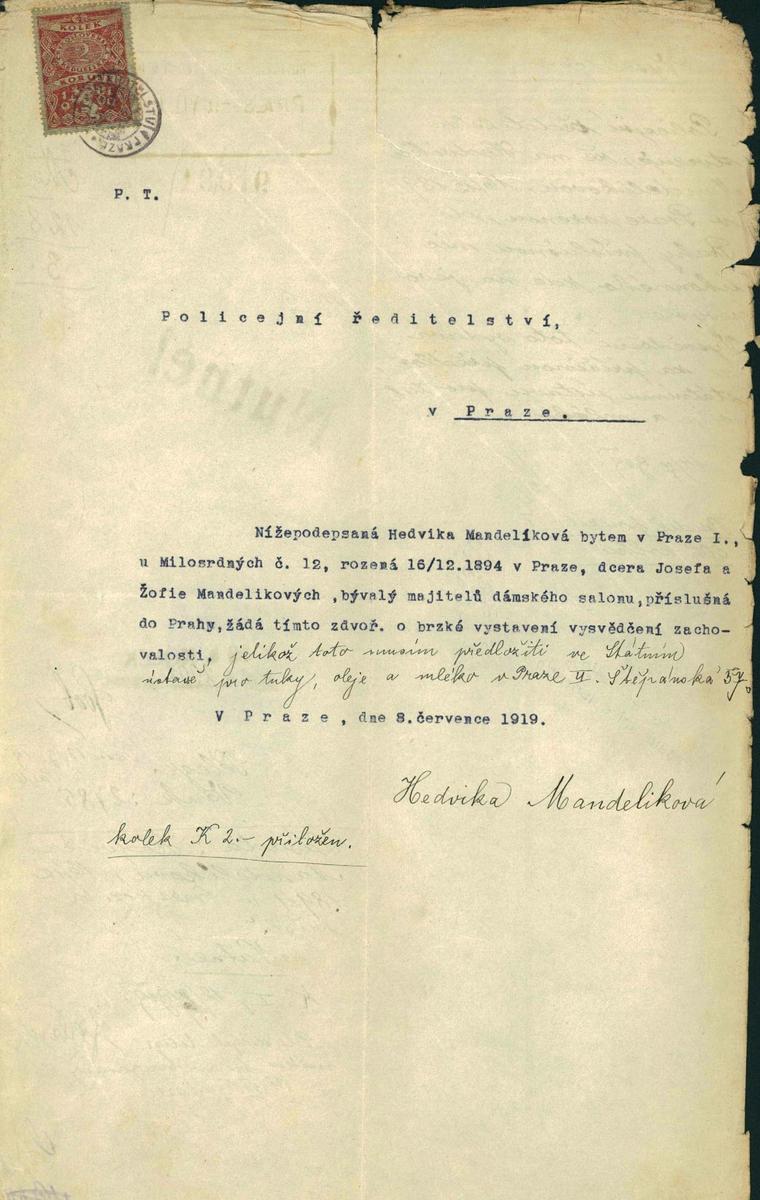 KOLEK
P. T.
Policejní ředitelství,
v Praze.
Nížepodepsaná Hedvika Mandelíková bytem v Praze I.,
u Milosrdných č. 12, rozená 16/12.1894 v Praze, dcera Josefa a
Žofie Mandelikových ,bývalý majitelů dámského salonu,příslušná
do Prahy,žádá tímto zdvoř. o brzké vystavení vysvědčení zacho-
valosti, jelikož toto musím předložiti ve Státním
ústavě pro tuky, oleje a mléko v Praze II. Štěpánská 57.
V Praze, dne 8.července 1919.
Hedvika Mandeliková
kolek K 2.- přiložen.